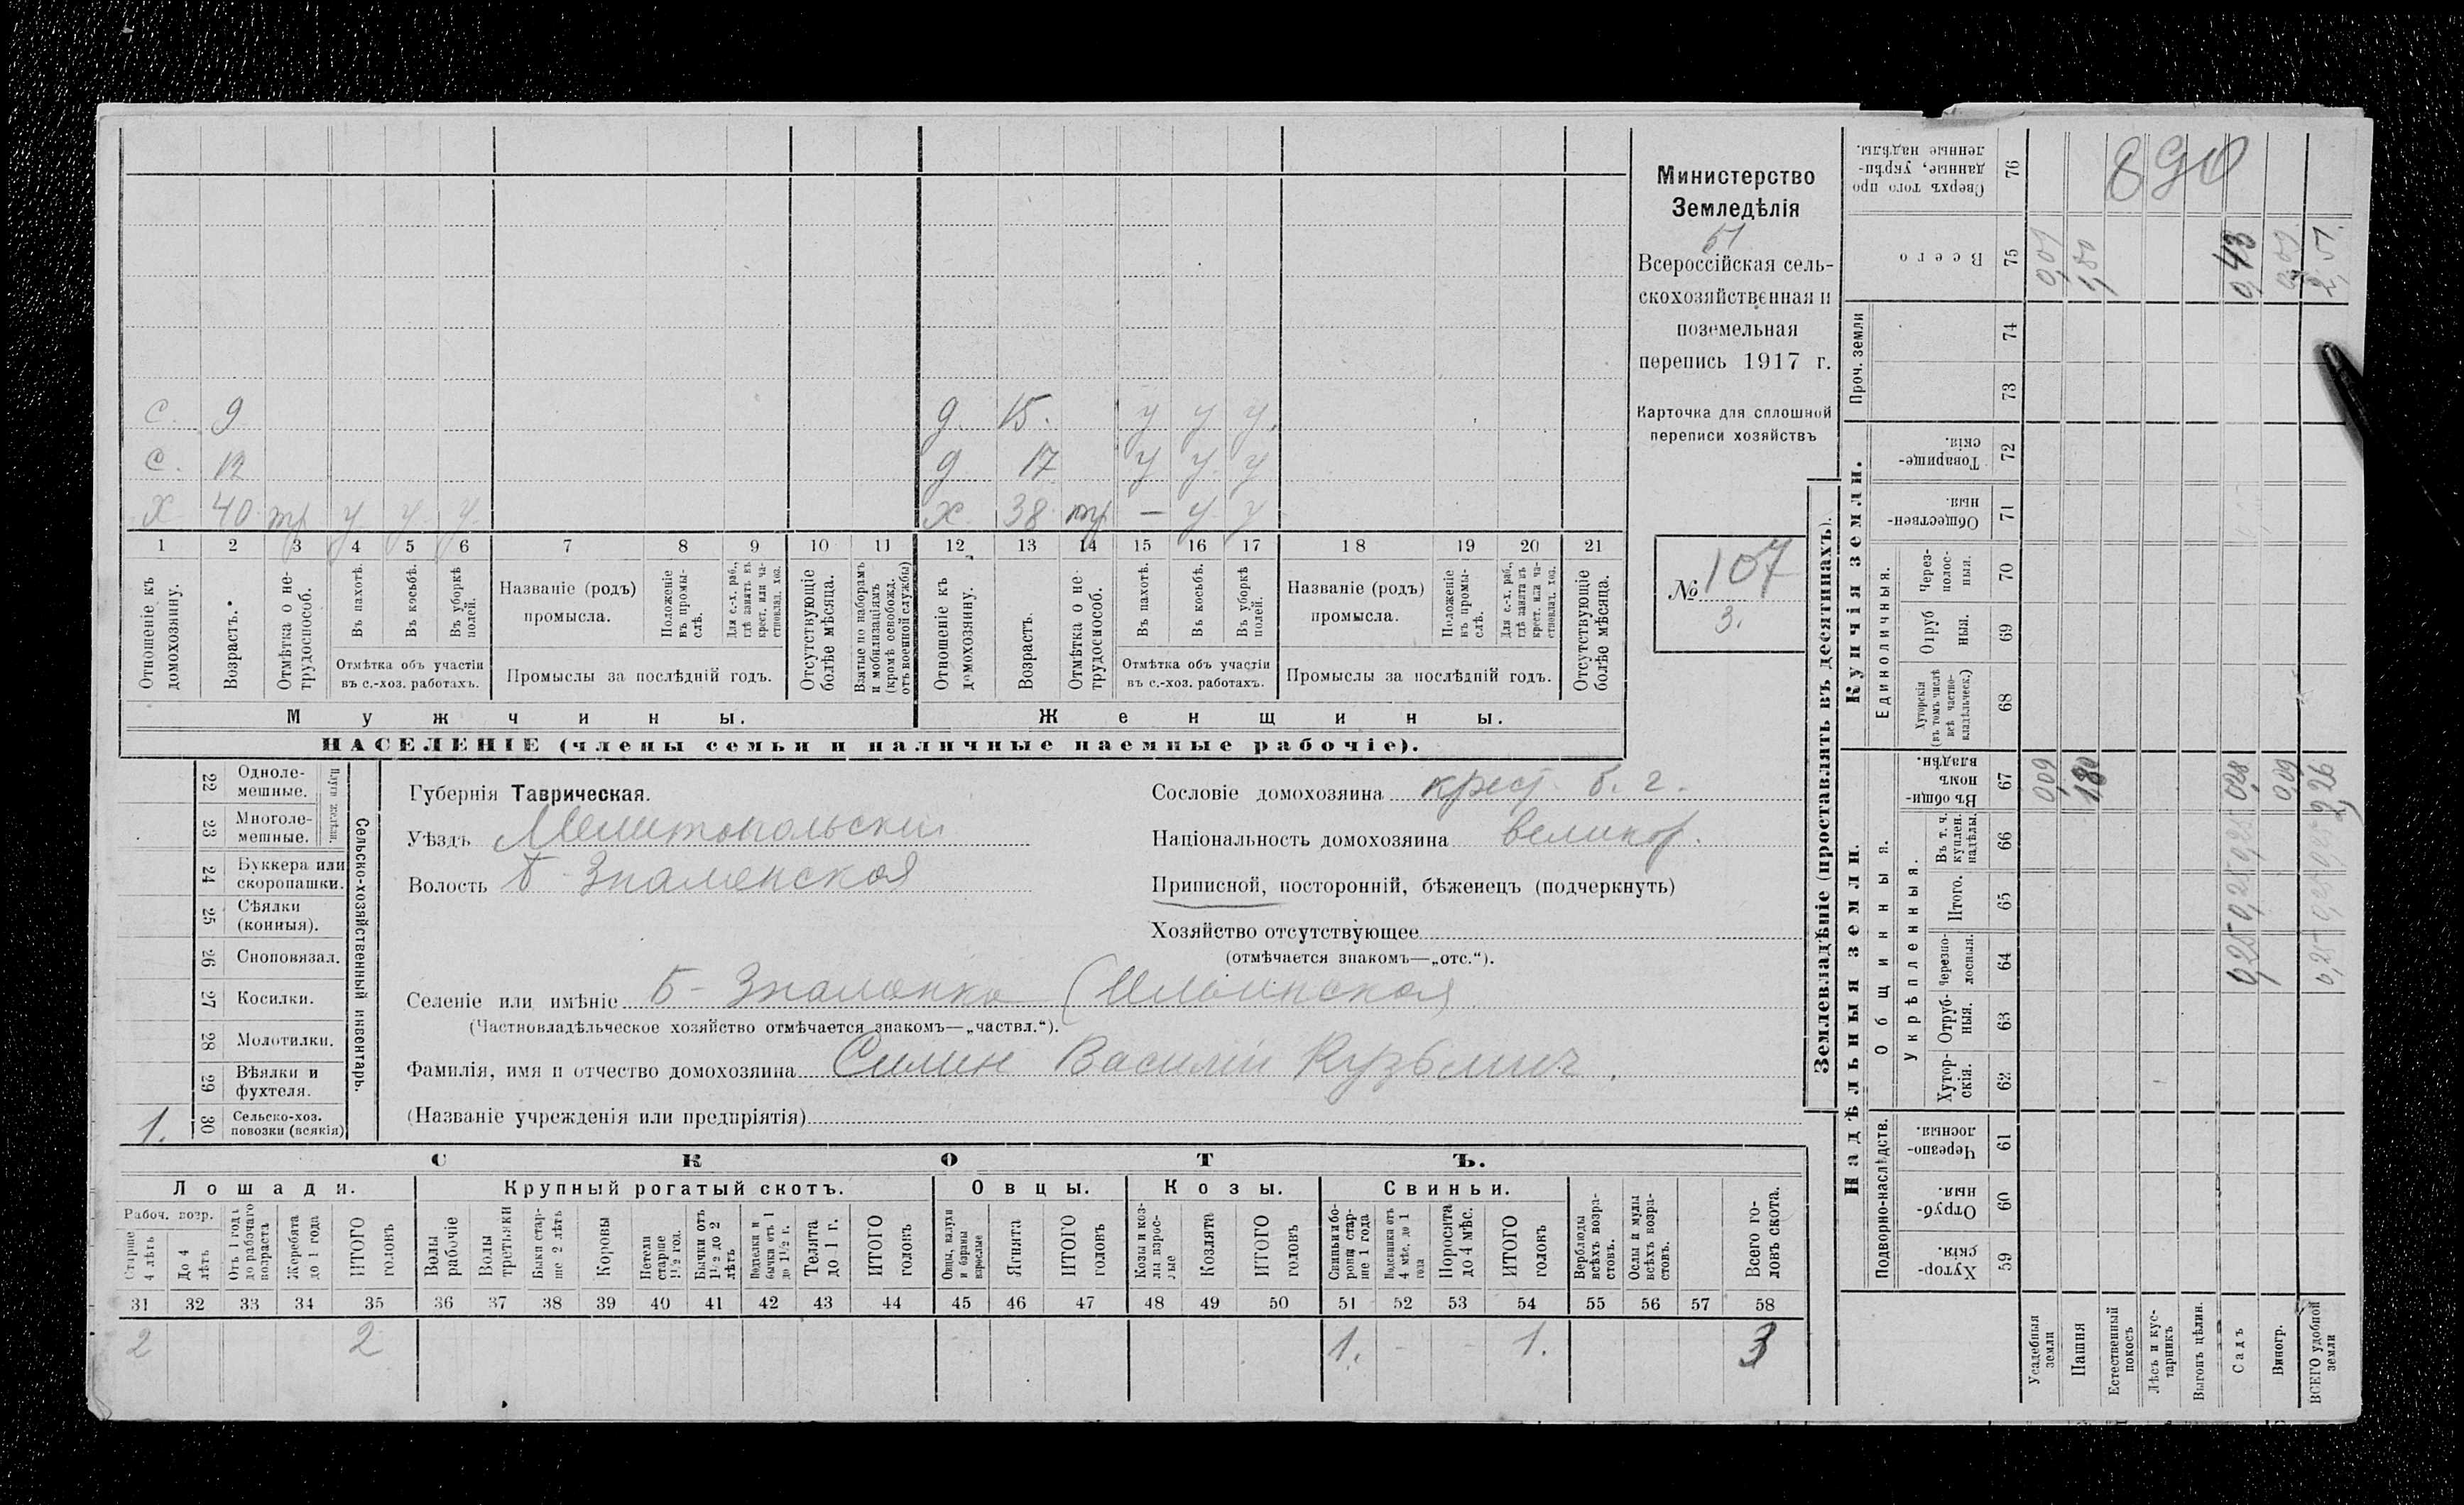 с. 9 д. 15. у у у.
с. 12 д 17 у у у
х 40 тр у у у х 38 тр — у у
1 2 3 4 5 6 7 8 9 10 11 12 13 14 15 16 17 18 19 20 21
Отношеніе къ домохозяину.
Возрастъ.
Отмѣтка о не-трудоспособ.
Въ пахотѣ.
Въ косьбѣ.
Въ уборкѣ полей.
Отмѣтка объ участіи
въ с.-хоз. работахъ.
Названіе (родъ)
промысла.
Положеніе въ промы-слѣ.
Для с.-х. раб., гдѣ занятъ въ крест. или ча-стновлад. хоз.
Промыслы за послѣдній годъ.
Отсутствующіе болѣе мѣсяца.
Взятые по наборамъ и мобилизаціямъ (кромѣ освобожд. отъ военной службы)
Отношеніе къ домохозяину.
Возрастъ.
Отмѣтка о не-трудоспособ.
Въ пахотѣ.
Въ косьбѣ.
Въ уборкѣ полей.
Отмѣтка объ участіи
въ с.-хоз. работахъ.
Названіе (родъ)
промысла.
Положеніе въ промы-слѣ.
Для с.-х. раб., гдѣ занята въ крест. или ча-стновлад. хоз.
Промыслы за послѣдній годъ.
Отсутствующіе болѣе мѣсяца.
Мужчины.
Женщины.
НАСЕЛЕНІЕ (члены семьи и наличные наемные рабочіе).
Министерство
Земледѣлія
51
Всероссійская сель-
скохозяйственная и
поземельная
перепись 1917 г.
Карточка для сплошной
переписи хозяйствъ
№ 107
3.
22 Одноле-мешные.
23 Многоле-мешные.
24 Буккера или скоропашки.
25 Сѣялки (конныя).
26 Сноповязал.
27 Косилки.
28 Молотилки.
29 Вѣялки и фухтеля.
1. 30 Сельско-хоз. повозки (всякія)
Сельско-хозяйственный инвентарь.
Губернія Таврическая.
Уѣздъ Мелитопольский
Волость Б-Знаменская
Сословіе домохозяина крест. б. г.
Національность домохозяина великор.
Приписной, посторонній, бѣженецъ (подчеркнуть)
Хозяйство отсутствующее
(отмѣчается знакомъ—„отс.“).
Селеніе или имѣніе Б-Знаменка (Ильинская
(Частновладѣльческое хозяйство отмѣчается знакомъ—„частвл.“).
Фамилія, имя и отчество домохозяина Силин Василий Кузьмич.
(Названіе учрежденія или предпріятія)
СКОТЪ.
Лошади.
Крупный рогатый скотъ.
Овцы.
Козы.
Свиньи.
Рабоч. возр.
Старше 4 лѣтъ
До 4 лѣтъ
Отъ 1 года до рабочаго возраста
Жеребята до 1 года
ИТОГО головъ
Волы рабочіе
Волы третьяки
Быки стар-ше 2 лѣтъ
Коровы
Нетели старше 1½ год.
Бычки отъ 1½ до 2 лѣтъ
Подтелки и бычки отъ 1 до 1½ г.
Телята до 1 г.
ИТОГО головъ
Овцы, валухи и бараны взрослые
Ягнята
ИТОГО головъ
Козы и коз-лы взрос-лые
Козлята
ИТОГО головъ
Свиньи и бо-ровы стар-ше 1 года
Подсвинки отъ 4 мѣс. до 1 года
Поросята до 4 мѣс.
ИТОГО головъ
Верблюды всѣхъ возра-стовъ.
Ослы и мулы всѣхъ возра-стовъ.
Всего го-ловъ скота.
31 32 33 34 35 36 37 38 39 40 41 42 43 44 45 46 47 48 49 50 51 52 53 54 55 56 57 58
2 2 1. - - 1. 3
Землевладѣніе (проставлять въ десятинахъ).
Надѣльныя земли.
Купчія земли.
Проч. земли
Подворно-наслѣдств.
Общинныя.
Укрѣпленныя.
Единоличныя.
Хутор-скія. 59
Отруб-ныя. 60
Черезпо-лосныя. 61
Хутор-скія. 62
Отруб-ныя. 63
Черезпо-лосныя. 64
Итого. 65
Въ т. ч. куплен. надѣлы. 66
Въ общи-номъ владѣн. 67
Хуторскія (въ томъ числѣ всѣ частно-владѣльческ.) 68
Отруб ныя. 69
Через-полос-ныя. 70
Обществен-ныя. 71
Товарище-скія. 72
73
74
Всего 75
Сверхъ того про данные, укрѣп-ленные надѣлы. 76
890
Усадебныя земли 0,09
Пашня 1,80 1,80
Естественный покосъ
Лѣсъ и кус-тарникъ
Выгонъ цѣлин.
Садъ 0,25 0,25 0,43
Виногр. 0,09
ВСЕГО удобной земли 0,25 2,26 2,51.